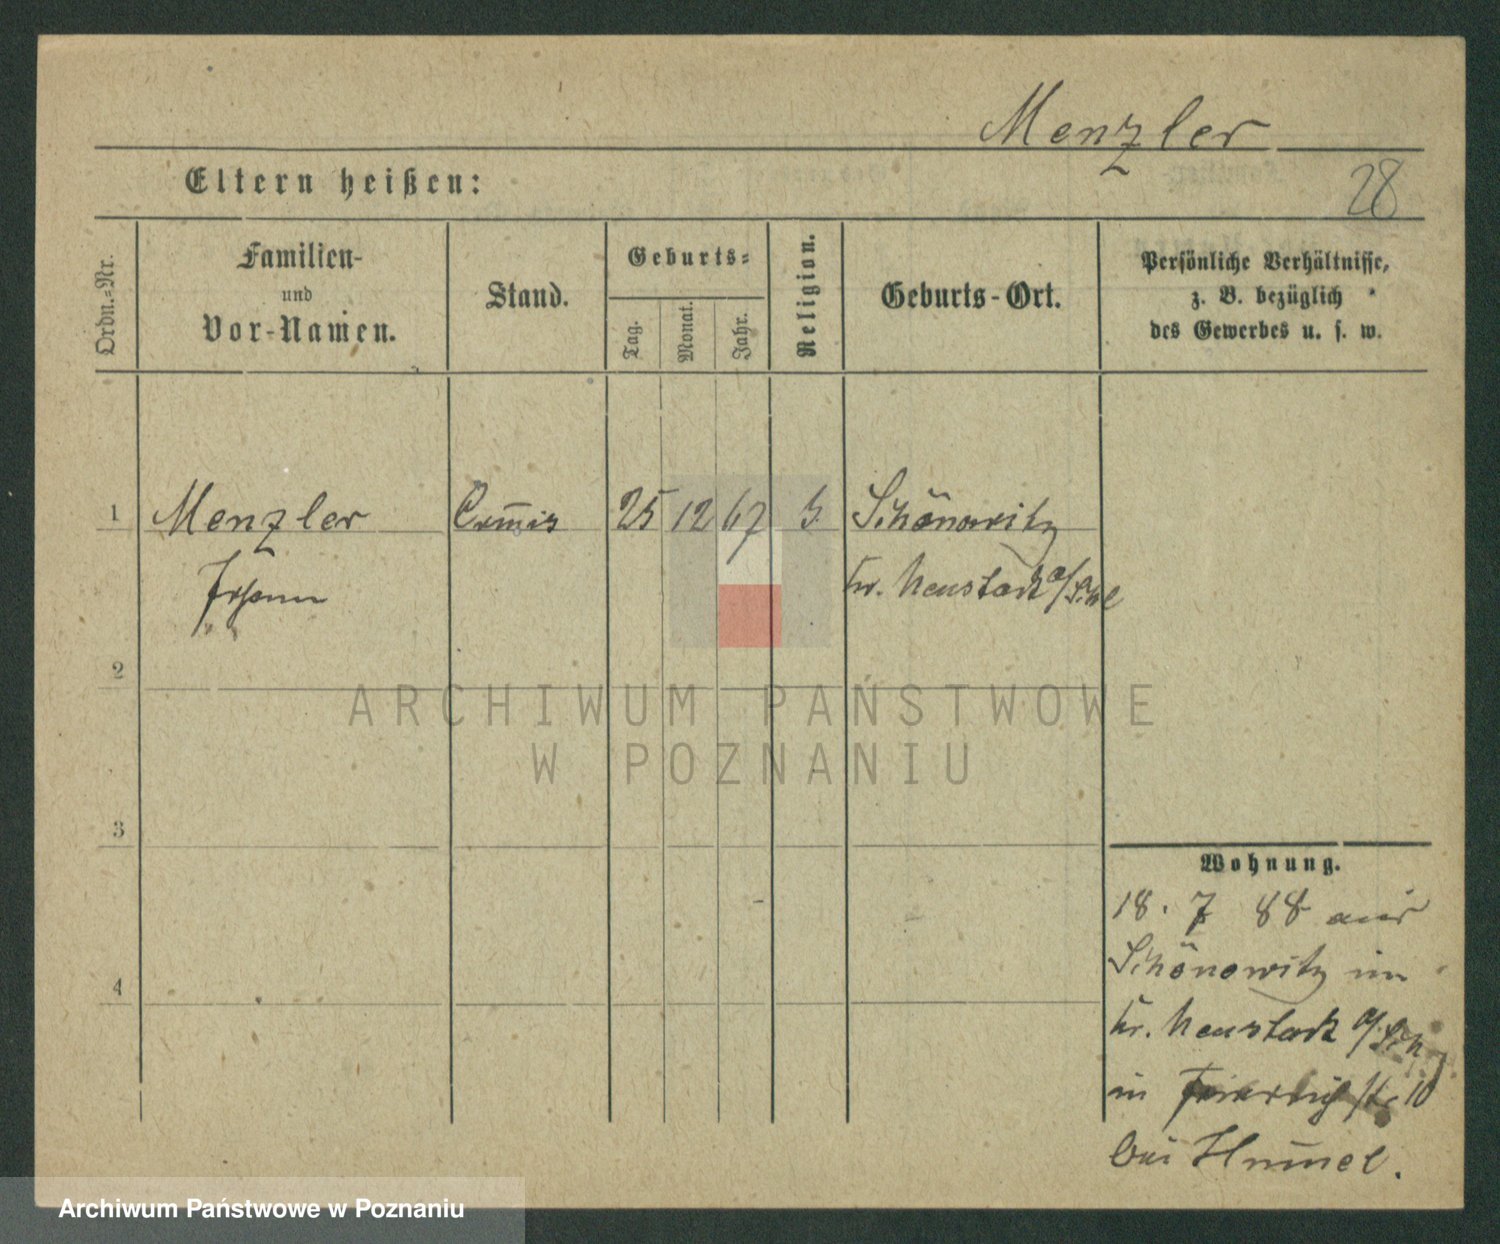 Menzler
28
Eltern heißen:
Ordn.-Nr.
Familien-
und
Vor-Namen.
Stand.
Geburts-
Tag.
Monat.
Jahr.
Religion.
Geburts-Ort.
Persönliche Verhältnisse,
z. B. bezüglich
des Gewerbes u. s. w.
1
Menzler
Johann
Com̅is
25
12
67
Schönowitz
Kr. Neustadt O/Schl
2
ARCHIWUM PAŃSTWOWE
W POZNANIU
3
Wohnung.
18. 7 88 aus
Schönowitz im
Kr. Neustadt O/Sch
in Friedrichstr 10
bei Hum̅el.
4
Archiwum Państwowe w Poznaniu